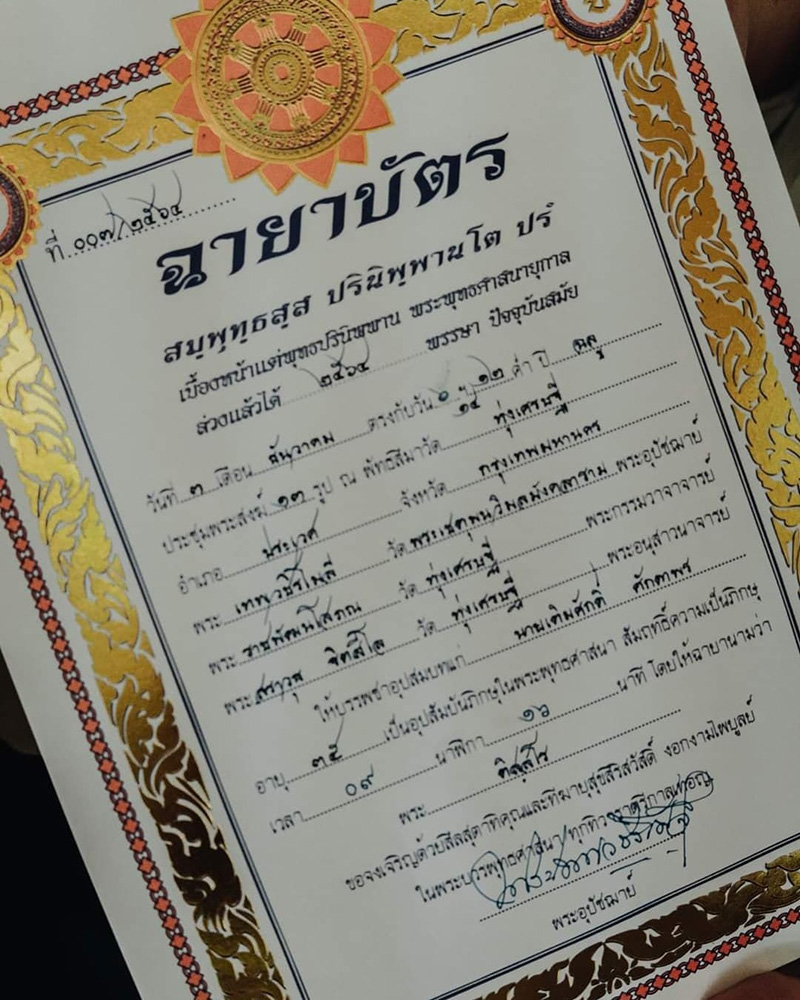 ที่ ๐๐๗/๒๕๖๔
ฉายาบัตร
สมฺพุทฺธสฺส ปรินิพฺพานโต ปรํ
เบื้องหน้าแต่พุทธปรินิพพาน พระพุทธศาสนายุกาล
ล่วงแล้วได้ ๒๕๖๔ พรรษา ปัจจุบันสมัย
วันที่ ๓ เดือน ธันวาคม ตรงกับวัน ๖ ฯ ๑๒ ค่ำ ปี ฉลู
๑๔
ประชุมพระสงฆ์ ๑๓ รูป ณ พัทธสีมาวัด ทุ่งเศรษฐี
อำเภอ ประเวศ จังหวัด กรุงเทพมหานคร
พระ เทพวชิรโมลี วัด พระเชตุพนวิมลมังคลาราม พระอุปัชฌาย์
พระ ราชพัฒนโสภณ วัด ทุ่งเศรษฐี พระกรรมวาจาจารย์
พระ สราวุธ วัด ทุ่งเศรษฐี พระอนุสาวนาจารย์
ให้บรรพชาอุปสมบทแก่ นายเติมศักดิ์
อายุ ๓๕ เป็นอุปสัมบันภิกษุในพระพุทธศาสนา สัมฤทธิ์ความเป็นภิกษุ
เวลา ๐๙ นาฬิกา ๑๖ นาที โดยให้ฉายานามว่า
พระ
ขอจงเจริญด้วยสีลสุตาทิคุณและทีฆายุสุขสิริสวัสดิ์ งอกงามไพบูลย์
ในพระบวรพุทธศาสนา ทุกทิวาราตรีกาลเทอญ
พระอุปัชฌาย์